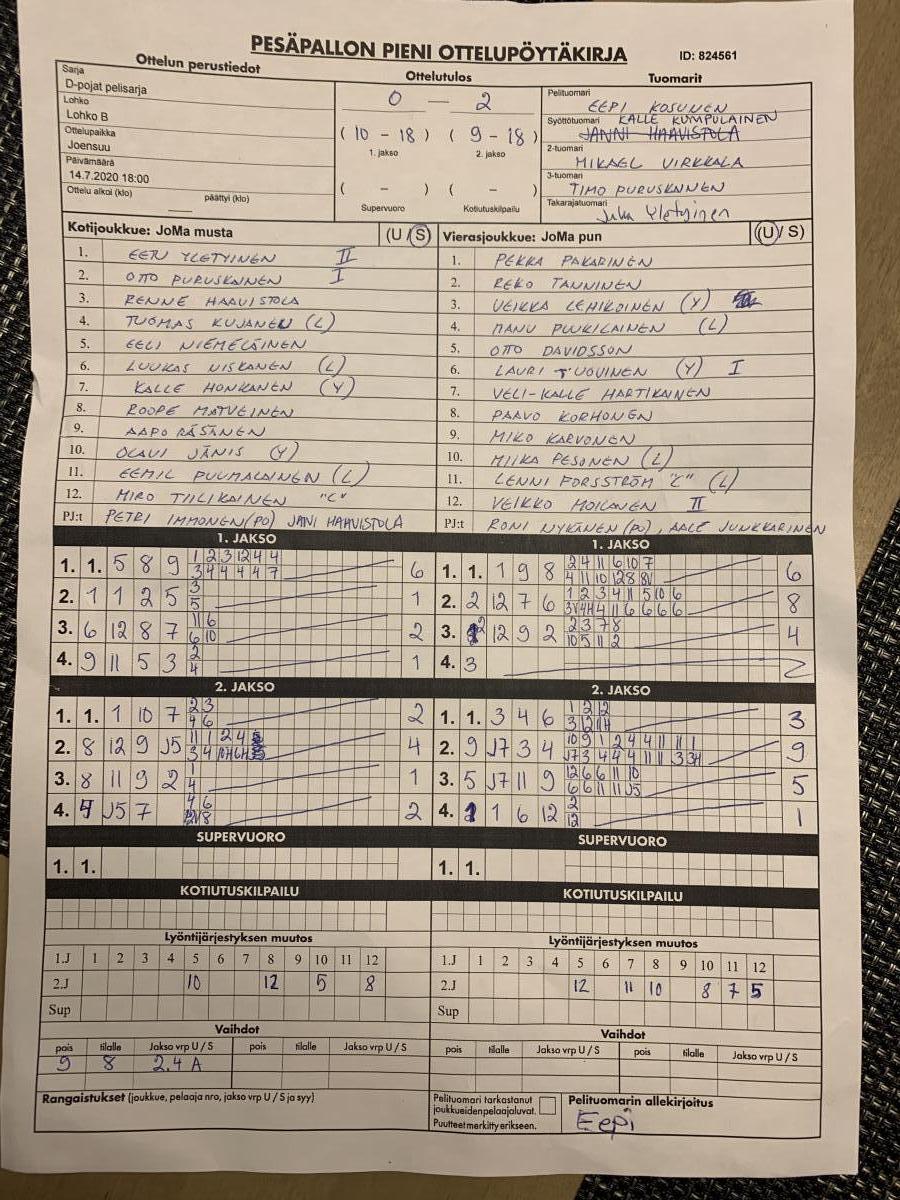 PESÄPALLON PIENI OTTELUPÖYTÄKIRJA
ID: 824561
Ottelun perustiedot
Sarja
D-pojat pelisarja
Lohko
Lohko B
Ottelupaikka
Joensuu
Päivämäärä
14.7.2020 18:00
Ottelu alkoi (klo) päättyi (klo)
Ottelutulos
0 — 2
(10 - 18) (9 - 18)
1. jakso 2. jakso
( - ) ( - )
Supervuoro Kotiutuskilpailu
Tuomarit
Pelituomari
EEPI KOSUNEN
Syöttötuomari KALLE KUMPULAINEN
JANNI HAAVISTOLA
2-tuomari
MIKAEL VIRKKALA
3-tuomari
TIMO PURUSKAINEN
Takarajatuomari
Juha Yletyinen
Kotijoukkue: JoMa musta (U / S)
1. EERU YLETYINEN II
2. OTTO PURUSKAINEN I
3. RENNE HAAVISTOLA
4. TUOMAS KUJANEN (L)
5. EELI NIEMELÄINEN
6. LUUKAS NISKANEN (L)
7. KALLE HONKANEN (Y)
8. ROOPE MATVEINEN
9. AAPO RÄSÄNEN
10. OLAVI JÄNIS (Y)
11. EEMIL PUUMALAINEN (L)
12. MIRO TIILIKAINEN "C"
PJ:t PETRI IMMONEN (PO) JANI HAAVISTOLA
Vierasjoukkue: JoMa pun (U / S)
1. PEKKA PAKARINEN
2. REKO TANNINEN
3. VEIKKA LEHIKOINEN (Y)
4. MANU PUUKILAINEN (L)
5. OTTO DAVIDSSON
6. LAURI TUOVINEN (Y) I
7. VELI-KALLE HARTIKAINEN
8. PAAVO KORHONEN
9. MIKO KARVONEN
10. MIIKA PESONEN (L)
11. LENNI FORSSTRÖM "C" (L)
12. VEIKKO MOILANEN II
PJ:t RONI NYKÄNEN (PO), AALE JUNKKARINEN
1. JAKSO
1. 1. 5 8 9 1 2 3 12 4 4 6
3 4 4 4 4 7
2. 1 1 2 5 3 1
5
3. 6 12 8 7 11 6 2
6 10
4. 9 11 5 3 2 1
4
2. JAKSO
1. 1. 1 10 7 2 3 2
4 6
2. 8 12 9 J5 11 1 2 4 4
3 4
3. 8 11 9 2 1 1
4
4. J5 7 4 6 2
SUPERVUORO
1. 1.
KOTIUTUSKILPAILU
1. JAKSO
1. 1. 1 9 8 2 4 11 6 10 7 6
4 11 10 12 8 8V
2. 2 12 7 6 1 2 3 4 11 5 10 6 8
3V 4H 4 11 6 6 6 6
3. 12 9 2 2 3 7 8 4
10 5 11 2
4. 3
2. JAKSO
1. 1. 3 4 6 1 2 12 3
3 12 11H
2. 9 J7 3 4 10 9 1 2 4 4 11 11 11 9
J7 3 4 4 4 11 11 3 3H
3. 5 J7 11 9 12 6 6 11 10 5
6 6 11 11 J5
4. 1 6 12 2 1
12
SUPERVUORO
1. 1.
KOTIUTUSKILPAILU
Lyöntijärjestyksen muutos
1.J 1 2 3 4 5 6 7 8 9 10 11 12
2.J 10 12 5 8
Sup
Vaihdot
pois tilalle Jakso vrp U / S pois tilalle Jakso vrp U / S
9 8 2.4 A
Lyöntijärjestyksen muutos
1.J 1 2 3 4 5 6 7 8 9 10 11 12
2.J 12 11 10 8 7 5
Sup
Vaihdot
pois tilalle Jakso vrp U / S pois tilalle Jakso vrp U / S
Rangaistukset (joukkue, pelaaja nro, jakso vrp U / S ja syy)
Pelituomari tarkastanut
joukkueidenpelaajaluvat.
Puutteet merkitty erikseen.
Pelituomarin allekirjoitus
Eepi